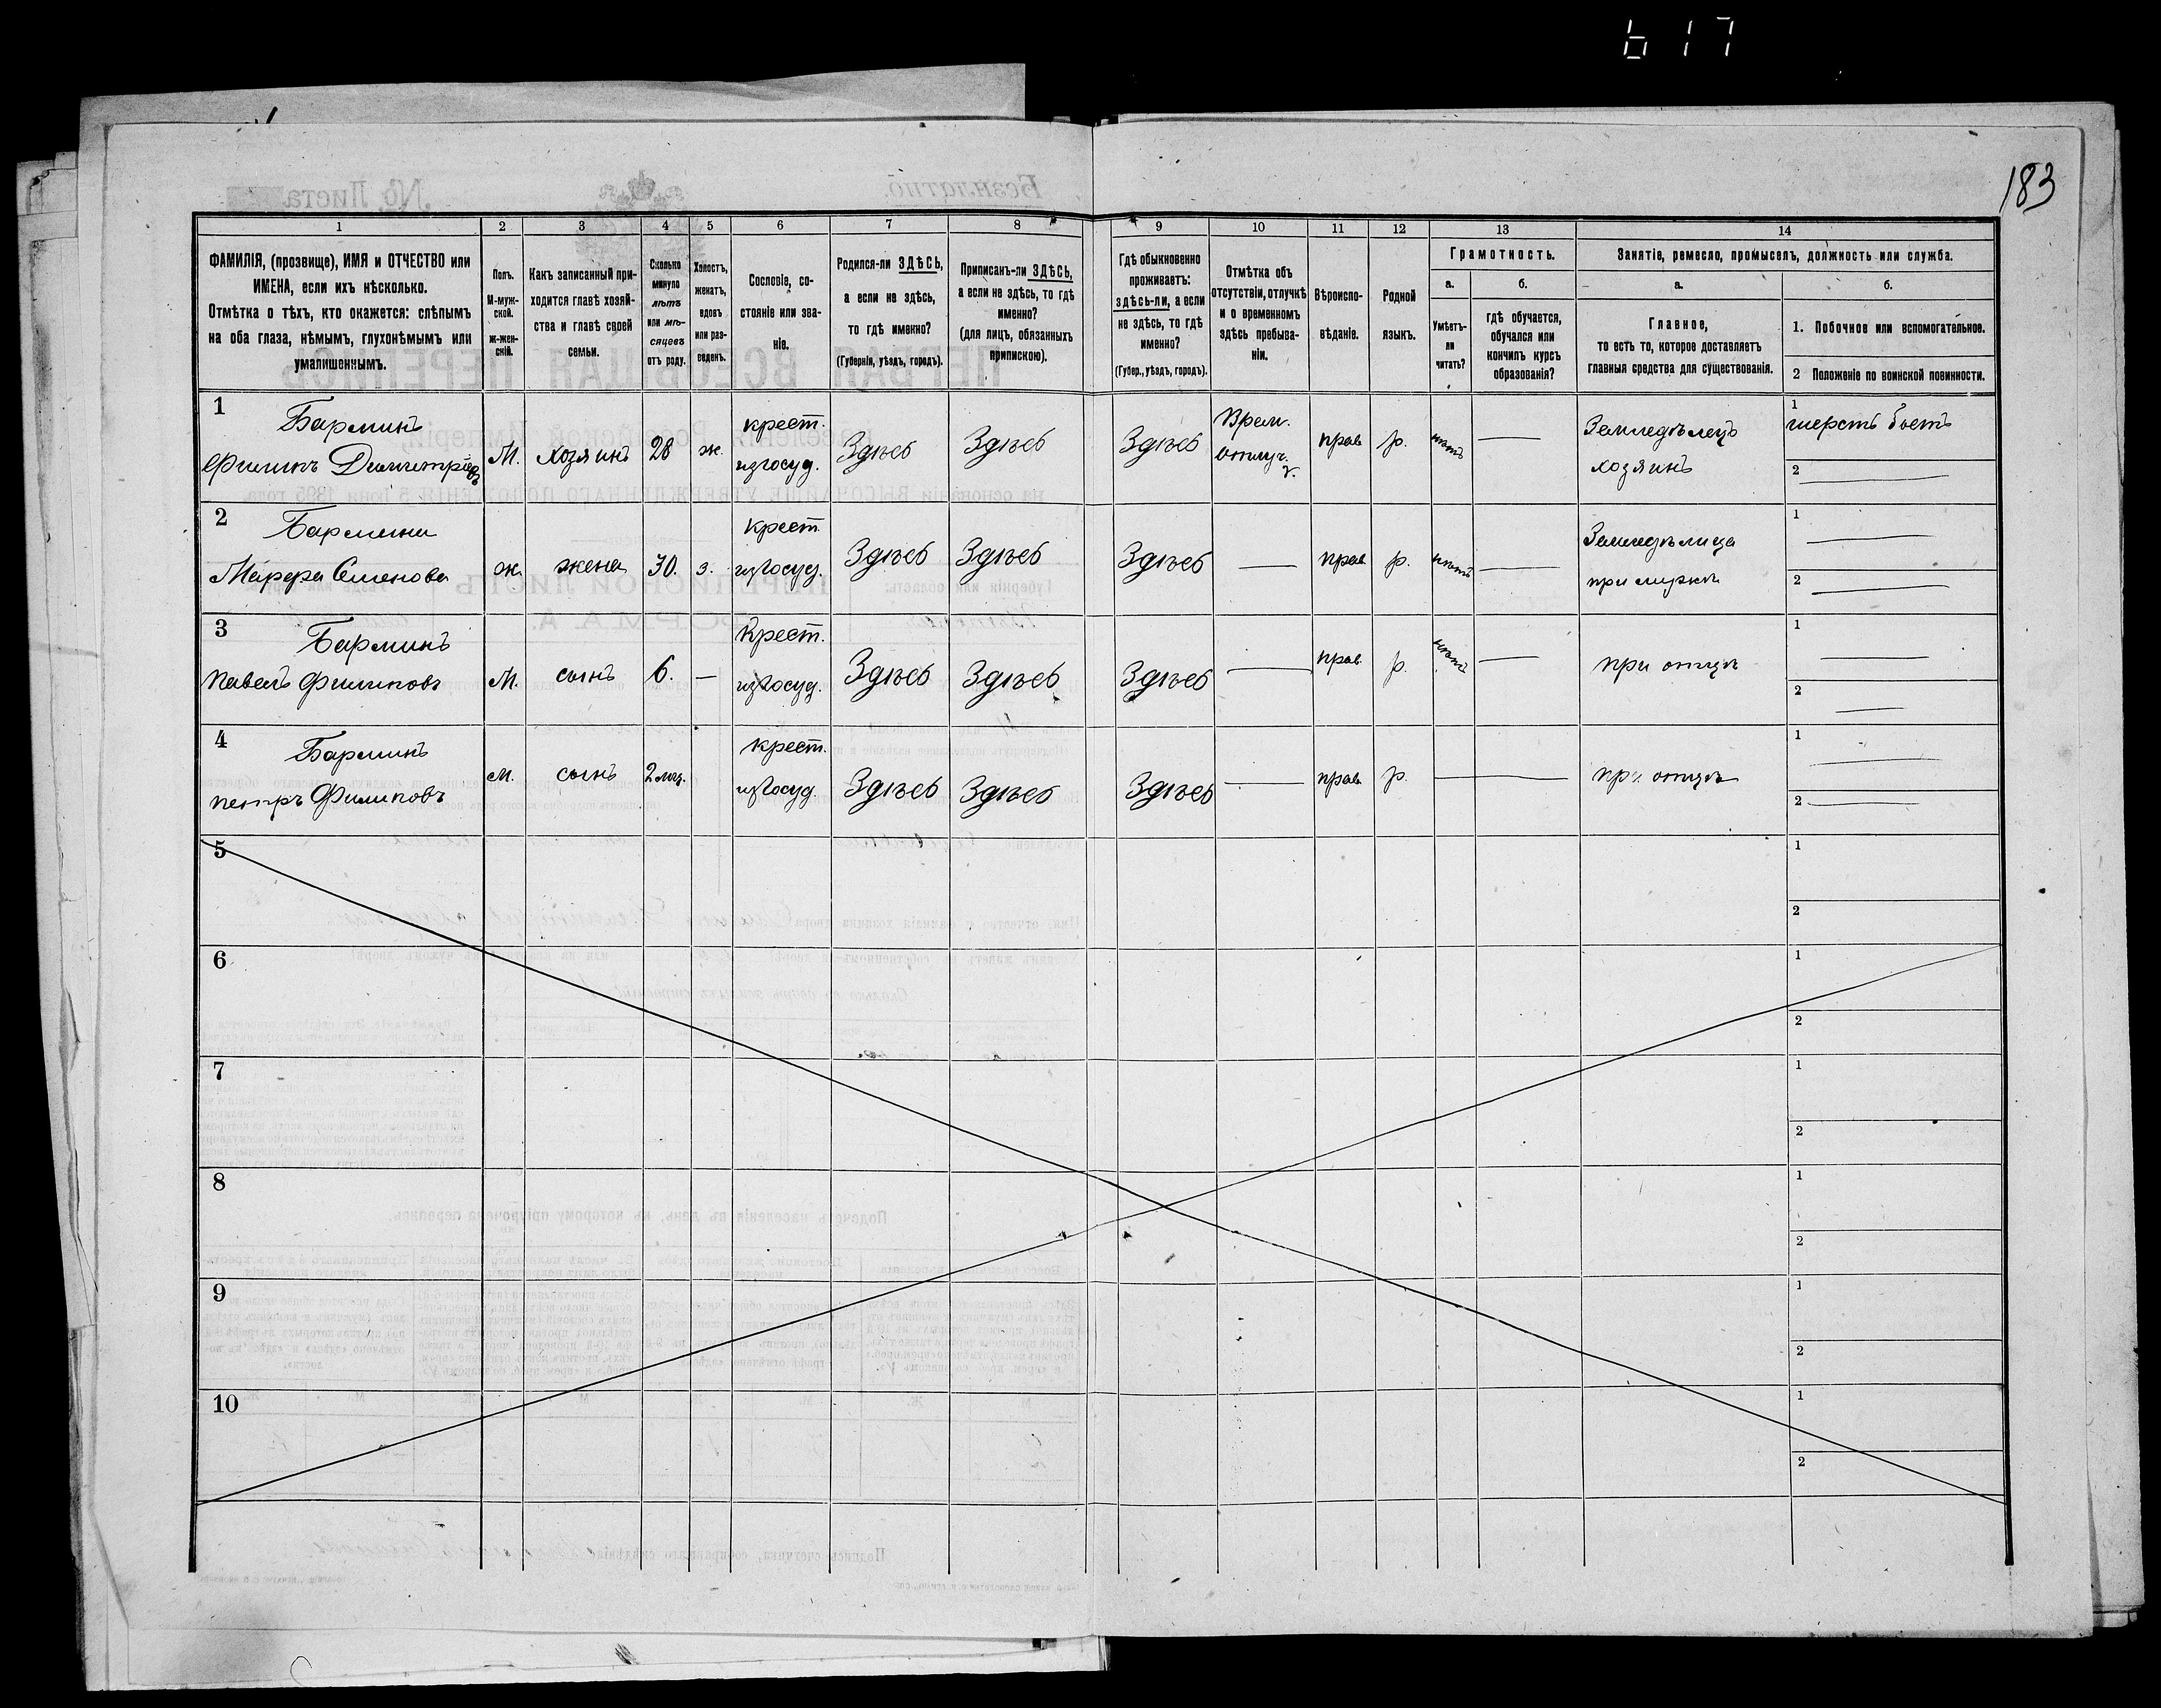 617
183
1
2
3
4
5
6
7
8
9
10
11
12
13
14
ФАМИЛІЯ, (прозвище), ИМЯ и ОТЧЕСТВО или
ИМЕНА, если ихъ нѣсколько.
Отмѣтка о тѣхъ, кто окажется: слѣпымъ
на оба глаза, нѣмымъ, глухонѣмымъ или
умалишеннымъ.
Полъ.
М-муж-
ской.
ж-жен-
скій.
Какъ записанный при-
ходится главѣ хозяй-
ства и главѣ своей
семьи.
Сколько
минуло
лѣтъ
или мѣ-
сяцевъ
отъ роду.
Холостъ,
женатъ,
вдовъ
или раз-
веденъ.
Сословіе, со-
стояніе или зва-
ніе.
Родился-ли ЗДѢСЬ,
а если не здѣсь,
то гдѣ именно?
(Губернія, уѣздъ, городъ).
Приписанъ-ли ЗДѢСЬ,
а если не здѣсь, то гдѣ
именно?
(для лицъ, обязанныхъ
припискою).
Гдѣ обыкновенно
проживаетъ:
здѣсь-ли, а если
не здѣсь, то гдѣ
именно?
(Губер., уѣздъ, городъ).
Отмѣтка объ
отсутствіи, отлучкѣ
и о временномъ
здѣсь пребыва-
ніи.
Вѣроиспо-
вѣданіе.
Родной
языкъ.
Грамотность.
а.
Умѣетъ-
ли
читать?
б.
гдѣ обучается,
обучался или
кончилъ курсъ
образованія?
Занятіе, ремесло, промыселъ, должность или служба.
а.
Главное,
то есть то, которое доставляетъ
главныя средства для существованія.
б.
1. Побочное или вспомогательное.
2 Положеніе по воинской повинности.
1
Барминъ
Филипъ Димитріевъ
М.
хозяинъ
28
ж.
крест.
изгосуд.
Здѣсь
Здѣсь
Здѣсь
Врем.
отлуч.
прав
р.
нѣтъ
Земледѣлецъ
хозяинъ
1
шерсть бьетъ
2
2
Бармина
Марфа Семенова
ж.
жена
30.
з.
крест.
изгосуд.
Здѣсь
Здѣсь
Здѣсь
прав
р.
нѣтъ
Земледѣлица
при мужѣ
1
2
3
Барминъ
павелъ Филиповъ
М.
сынъ
6.
Крест.
изгосуд.
Здѣсь
Здѣсь
Здѣсь
прав
р.
нѣтъ
при отцѣ
1
2
4
Барминъ
петръ Филиповъ
м.
сынъ
2 мц.
крест.
изгосуд.
Здѣсь
Здѣсь
Здѣсь
прав
р.
при отцѣ
1
2
5
1
2
6
1
2
7
1
2
8
1
2
9
1
2
10
1
2